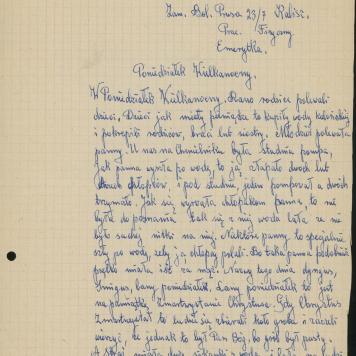 Zam. Bol. Prusa 23/7 Kalisz.
Prac. Fizyczny
Emerytka.
Poniedziałek Wielkanocny.
W Poniedziałek Wielkanocny. Rano rodzice polewali
dzieci, Dzieci jak miały pieniądze to kupiły wody kolońskiej
i pokropiły rodziców, braci lub siostry. Młodzież polewała
panny. U nas na Chmielniku była studnia pompa,
jak panna wyszła po wodę, to ją złapało dwóch lub
trzech chłopków, i pod studnię, jeden pompował a dwóch
trzymało. Jak się wyrwała chłopakom panna, to nie
była do poznania tak się z niej woda lała że nie
było suchej nitki na niej. Niektóre panny to specjalnie
szły po wodę, żeby ją chłopcy polali. Bo taka panna podobnie
prędko miała iść za mąż. Nazwy tego dnia dyngus,
śmigus, lany poniedziałek. Lany poniedziałek to jest
na pamiątkę zmartwychwstania Chrystusa. Gdy Chrystus
Zmartwychwstał to ludzie się zbierali koło grobu i zaczęli
wierzyć, że jednak to był Pan Bóg, bo grób był pusty.